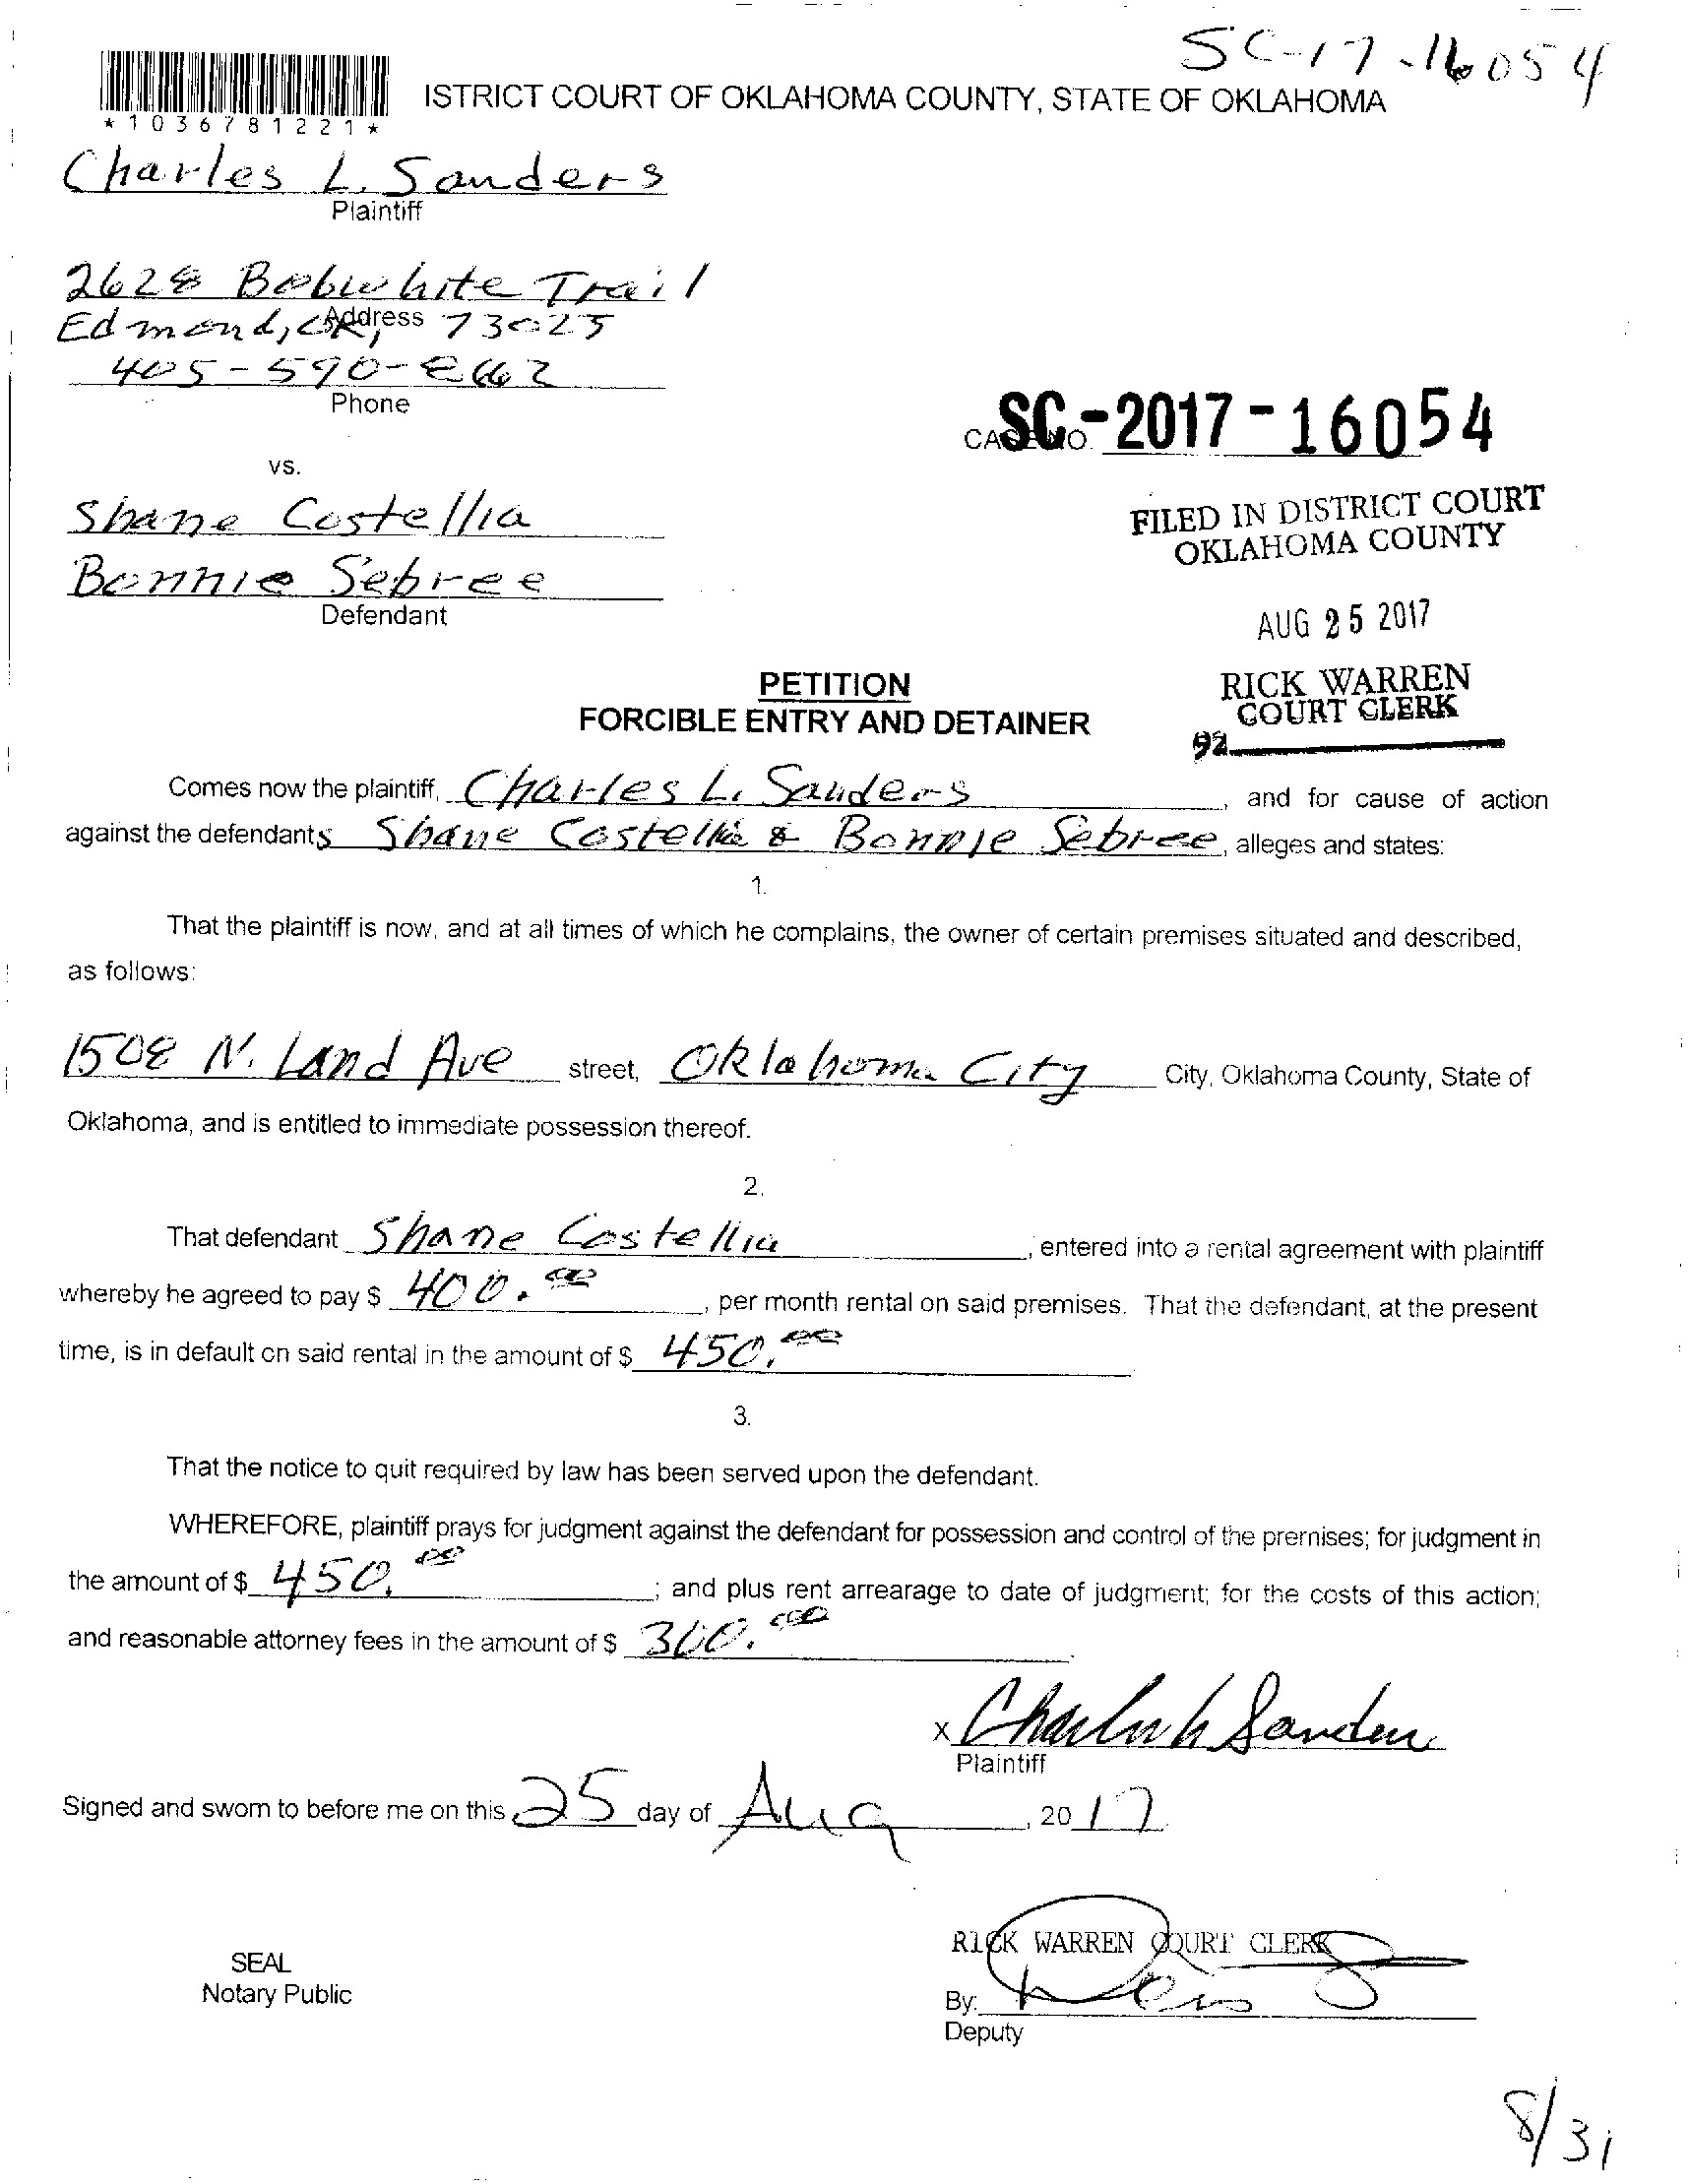 SC-17-16054
ISTRICT COURT OF OKLAHOMA COUNTY, STATE OF OKLAHOMA
*1036781221*
Charles L. Sanders
Plaintiff
2628 Bobwhite Trail
Edmond, OK, 73025
Address
405-590-8662
Phone
CASE NO. SC-2017-16054
vs.
Shane Costellia
Bonnie Sebree
Defendant
FILED IN DISTRICT COURT
OKLAHOMA COUNTY
AUG 25 2017
RICK WARREN
COURT CLERK
92
PETITION
FORCIBLE ENTRY AND DETAINER
Comes now the plaintiff, Charles L. Sanders, and for cause of action
against the defendants Shane Costellia & Bonnie Sebree, alleges and states:
1.
That the plaintiff is now, and at all times of which he complains, the owner of certain premises situated and described,
as follows:
1508 N. Land Ave street, Oklahoma City City, Oklahoma County, State of
Oklahoma, and is entitled to immediate possession thereof.
2.
That defendant Shane Costellia, entered into a rental agreement with plaintiff
whereby he agreed to pay $ 400.00, per month rental on said premises. That the defendant, at the present
time, is in default on said rental in the amount of $ 450.00
3.
That the notice to quit required by law has been served upon the defendant.
WHEREFORE, plaintiff prays for judgment against the defendant for possession and control of the premises; for judgment in
the amount of $ 450.00; and plus rent arrearage to date of judgment; for the costs of this action;
and reasonable attorney fees in the amount of $ 300.00.
x Charles L Sanders
Plaintiff
Signed and sworn to before me on this 25 day of Aug, 2017
RICK WARREN COURT CLERK
SEAL
Notary Public
By:
Deputy
8/31